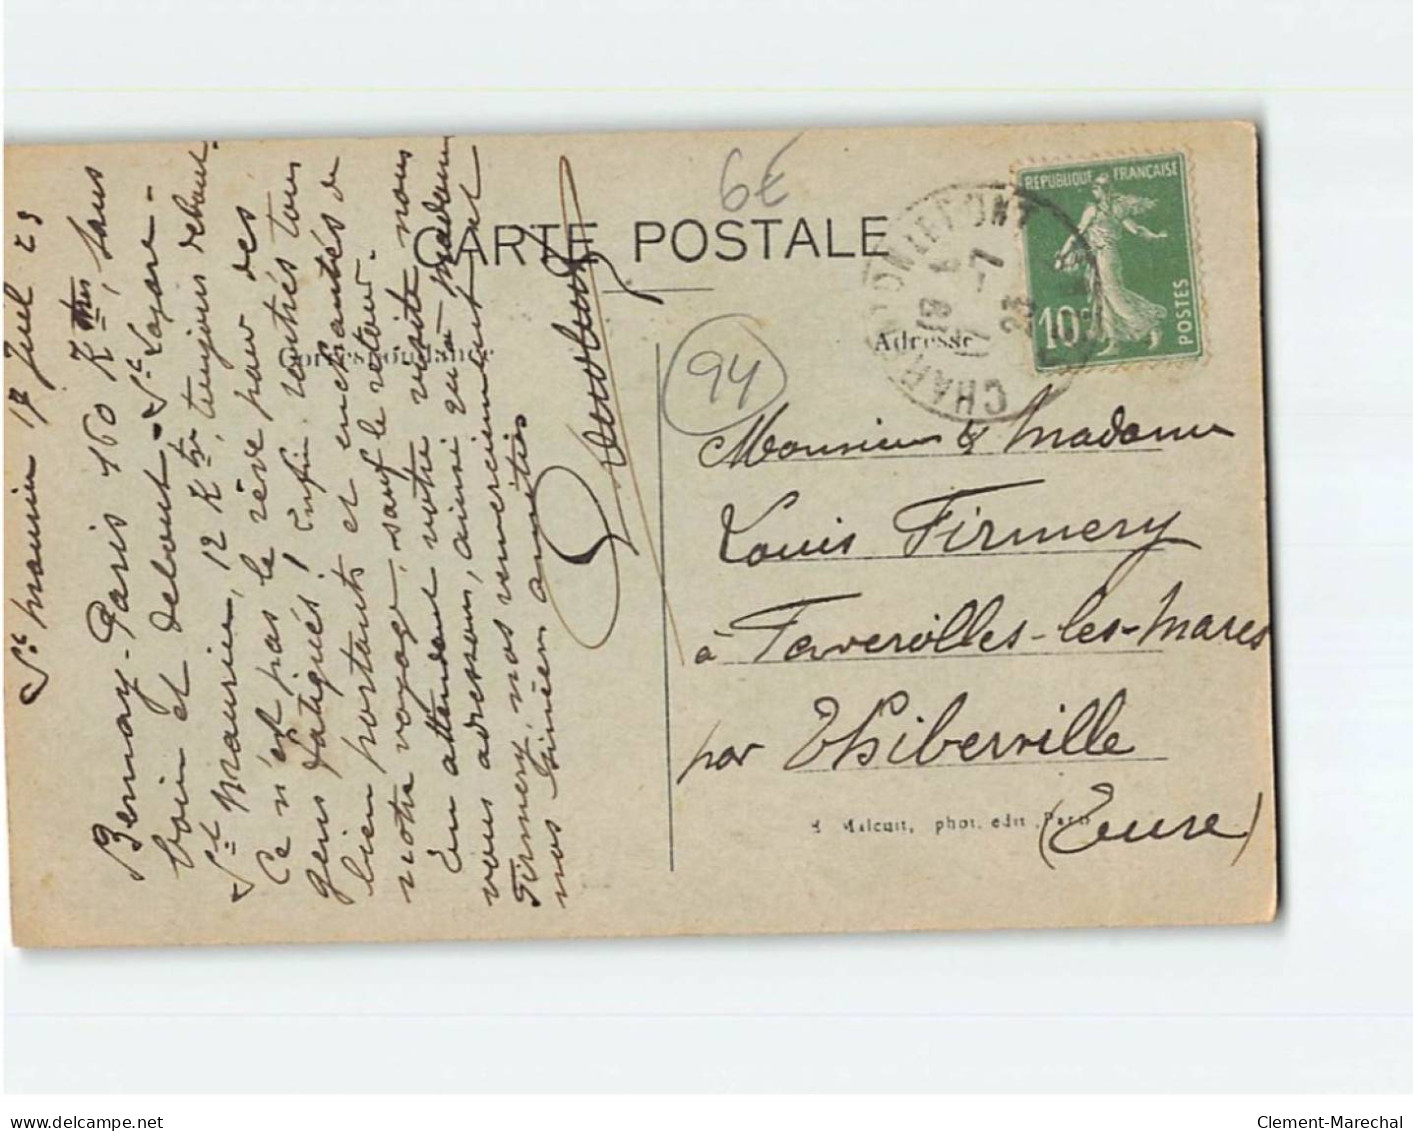 6€
CARTE POSTALE
Correspondance
Adresse
RÉPUBLIQUE FRANÇAISE
10c
POSTES
CHARENTON LE PONT
18
17-7
23
94
St Maurice 17 Juil 23
Bernay-Paris 160 Ktres, sans
boire et debout - St Lazare -
St Maurice, 12 Ktres, toujours debout.
Ce n'est pas le rêve pour des
gens fatigués! Enfin, rentrés tous
bien portants et enchantés de
notre voyage, sauf le retour.
En attendant votre visite nous
vous adressons, ainsi qu'à Madame
Firmery, nos remerciements et
nos sincères amitiés
Monsieur & Madame
Louis Firmery
à Faverolles-les-Mares
par Thiberville
(Eure)
Malcuit, phot. edit. Paris
www.delcampe.net
Clement-Marechal